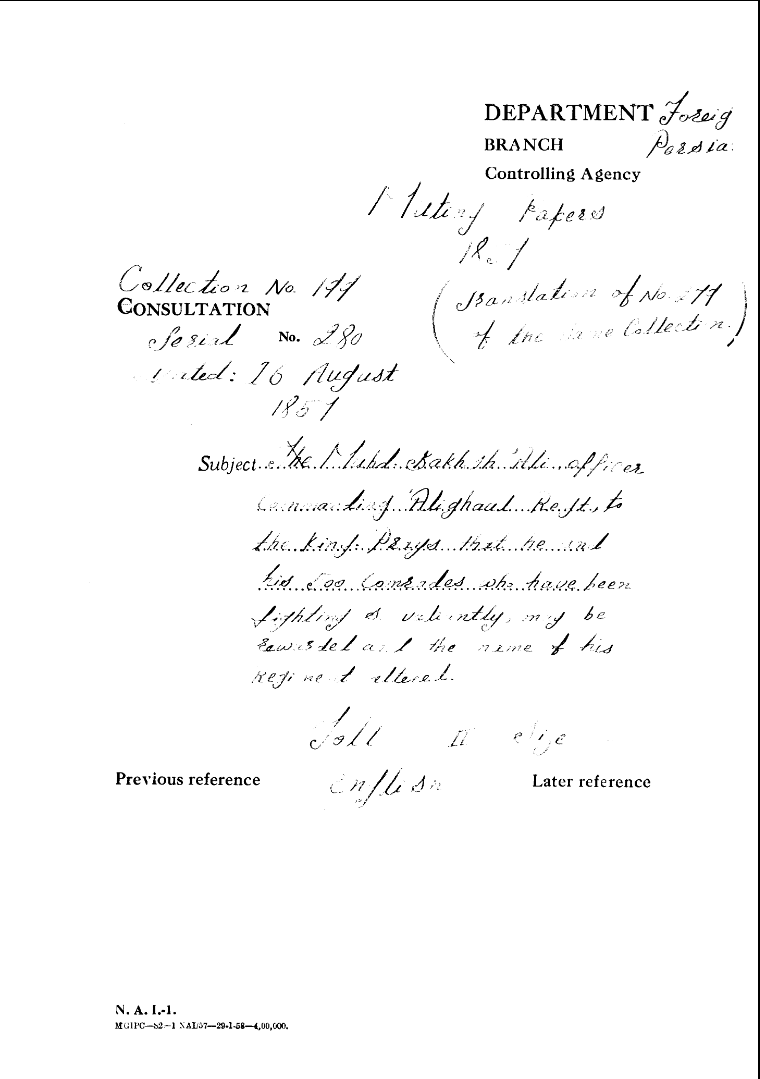 DEPARTMENT Foreig
BRANCH Persia
Controlling Agency
Mutiny Papers
1857
Collection No. 177
CONSULTATION
(Translation of No. 277
Serial No. 280
of the same Collection.)
Dated: 16 August
1857
Subject.. The Muhd. Bakhsh 'Ali officer
Commanding 'Alighaul Regt., to
the King: Prays that he and
his 500 Comrades who have been
fighting so valiently, may be
rewarded and the name of his
Regiment altered.
Foll II size
Previous reference English Later reference
N. A. I.-1.
MGIPC—S2—1 NAI/57—29-1-58—4,00,000.